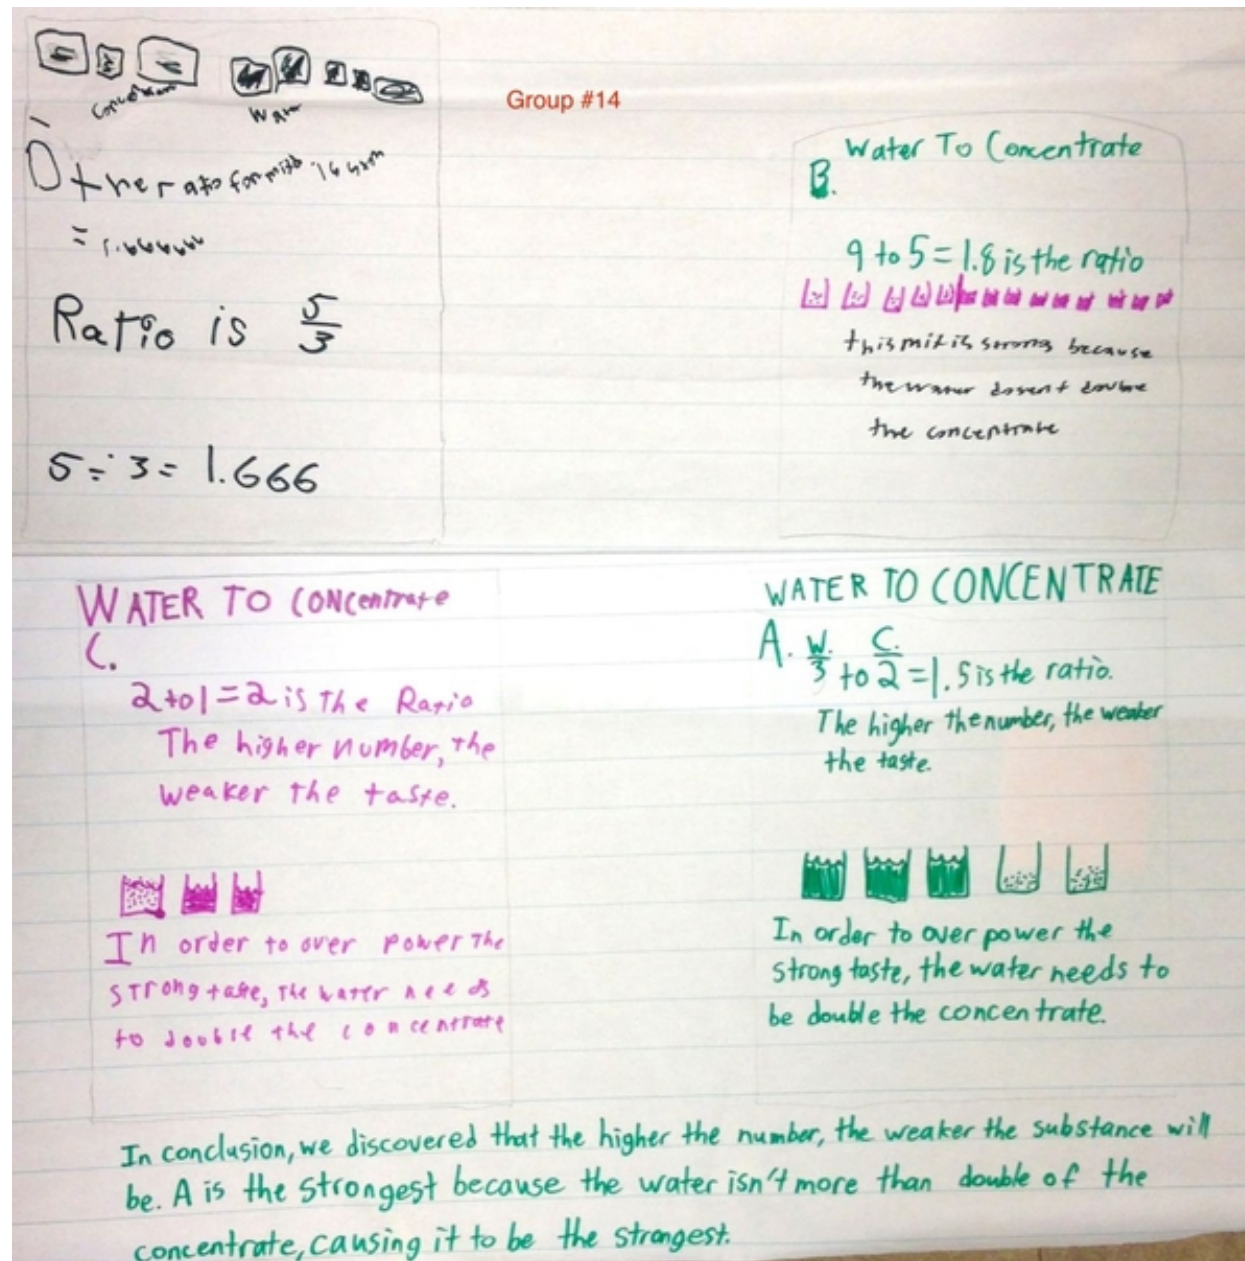 Water
Group #14
D the ratio for mix
Ratio is 5/3
5 ÷ 3 = 1.666
Water To Concentrate
B.
9 to 5 = 1.8 is the ratio
this mix is strong because
the water dosent double
the concentrate
WATER TO CONCentrate
C.
2 to 1 = 2 is The Ratio
The higher number, the
weaker the taste.
In order to over power The
strong taste, The water needs
to double the concentrate
WATER TO CONCENTRATE
A. W. C.
3 to 2 = 1.5 is the ratio.
The higher the number, the weaker
the taste.
In order to over power the
strong taste, the water needs to
be double the concentrate.
In conclusion, we discovered that the higher the number, the weaker the substance will
be. A is the strongest because the water isn't more than double of the
concentrate, causing it to be the strongest.